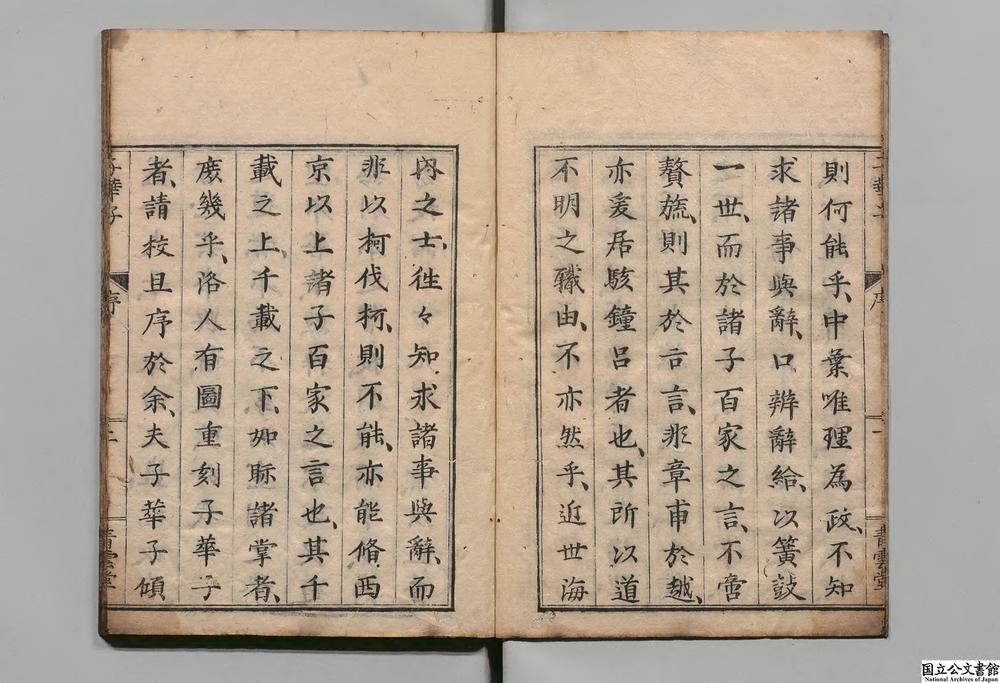 則何能乎、中葉唯理為政、不知
求諸事與辭、口辨辭給、以簧鼓
一世、而於諸子百家之言、不啻
贅旒、則其於古言、非章甫於越、
亦爰居駭鐘呂者也、其所以道
不明之職由、不亦然乎、近世海
內之士、徃々知求諸事與辭、而
非以柯伐柯、則不能、亦能脩西
京以上諸子百家之言也、其千
載之上、千載之下、如眎諸掌者、
庻幾乎、洛人有圖重刻子華子
者、請校且序於余、夫子華子傾
序
一
青雲堂
子華子
序
二
青雲堂
国立公文書館
National Archives of Japan